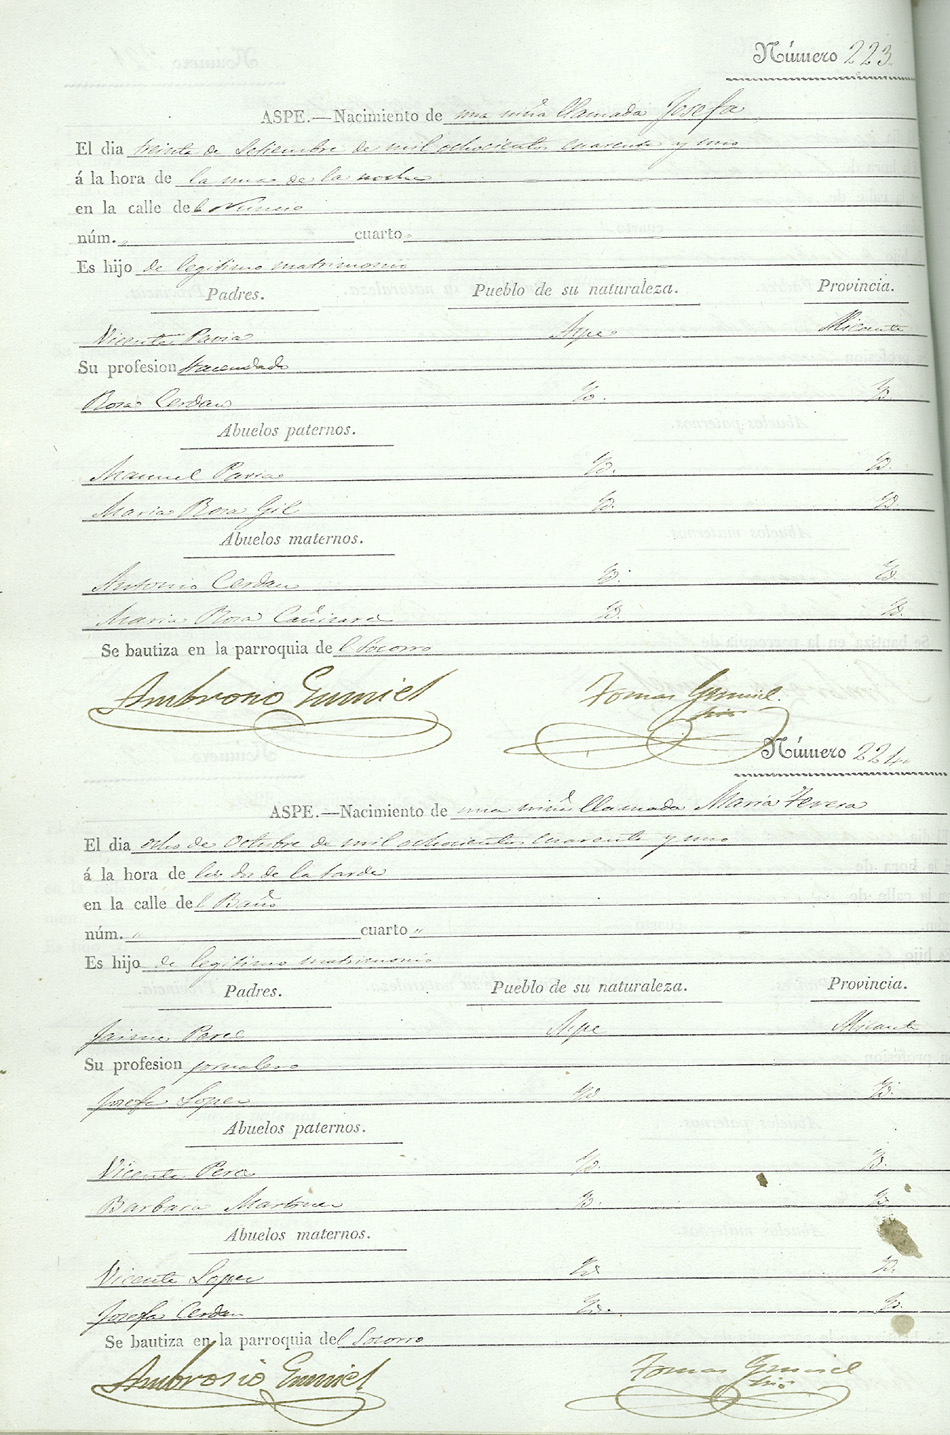 Número 223.
ASPE.—Nacimiento de una niña llamada Josefa
El dia treinta de Setiembre de mil ochocientos cuarenta y uno
á la hora de la una de la noche
en la calle del
núm. „ cuarto „
Es hijo de legitimo matrimonio
Padres. Pueblo de su naturaleza. Provincia.
Vicente Pavia Aspe Alicante
Su profesion Hacendado
Rosa Cerdan Yd. Yd.
Abuelos paternos.
Manuel Pavia Yd. Yd.
Maria Rosa Gil Yd. Yd.
Abuelos maternos.
Antonio Cerdan Yd. Yd.
Maria Rosa Cañizares Yd. Yd.
Se bautiza en la parroquia del Socorro
Ambrosio Gumiel Tomas Gumiel
Número 224.
ASPE.—Nacimiento de una niña llamada Maria Teresa
El dia ocho de Octubre de mil ochocientos cuarenta y uno
á la hora de las dos de la tarde
en la calle del Baño
núm. „ cuarto „
Es hijo de legitimo matrimonio
Padres. Pueblo de su naturaleza. Provincia.
Jaime Perez Aspe Alicante
Su profesion jornalero
Josefa Lopez Yd Yd.
Abuelos paternos.
Vicente Perez Yd. Yd.
Barbara Martinez Yd. Yd.
Abuelos maternos.
Vicente Lopez Yd. Yd.
Josefa Cerdan Yd. Yd.
Se bautiza en la parroquia del Socorro
Ambrosio Gumiel Tomas Gumiel